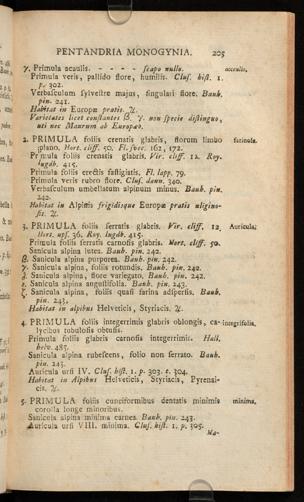 PENTANDRIA MONOGYNIA. 205
γ. Primula acaulis. - - - - scapo nullo. acaulis.
Primula veris, pallido flore, humilis. Cluſ. hiſt. 1.
p. 302.
Verbaſculum ſylveſtre majus, ſingulari flore. Bauh.
pin. 241.
Habitat in Europæ pratis. ♃.
Varietates licet conſtantes β. γ. non ſpecie diſtinguo,
uti nec Maurum ab Europæo.
2. PRIMULA foliis crenatis glabris, florum limbo farinoſa.
plano. Hort. cliff. 50. Fl. ſvec. 162, 172.
Primula foliis crenatis glabris. Vir. cliff. 12. Roy.
lugdb. 415.
Primula foliis erectis faſtigiatis. Fl. lapp. 79.
Primula veris rubro flore. Cluſ. dann. 340.
Verbaſculum umbellatum alpinum minus. Bauh. pin.
242.
Habitat in Alpinis frigidisque Europæ pratis uligino-
ſis. ♃.
3. PRIMULA foliis ſerratis glabris. Vir. cliff. 12, Auricula.
Hort. upſ. 36. Roy. lugdb. 415.
Primula foliis ſerratis carnoſis glabris. Hort. cliff. 50.
Sanicula alpina lutea. Bauh. pin. 242.
β. Sanicula alpina purpurea. Bauh. pin. 242.
γ. Sanicula alpina, foliis rotundis. Bauh. pin. 242.
δ. Sanicula alpina, flore variegato. Bauh. pin. 242.
ε. Sanicula alpina anguſtifolia. Bauh. pin. 243.
ζ. Sanicula alpina, foliis quaſi farina adſperſis. Bauh.
pin. 243.
Habitat in alpibus Helveticis, Styriacis. ♃.
4. PRIMULA foliis integerrimis glabris oblongis, ca- integrifolia.
lycibus tubuloſis obtuſis.
Primula foliis glabris carnoſis integerrimis. Hall.
helv. 485.
Sanicula alpina rubeſcens, folio non ſerrato. Bauh.
pin. 243.
Auricula urſi IV. Cluſ. hiſt. 1. p. 303. t. 304.
Habitat in Alpibus Helveticis, Styriacis, Pyrenai-
cis. ♃.
5. PRIMULA foliis cuneiformibus dentatis minimis minima.
corolla longe minoribus.
Sanicula alpina minima carnea. Bauh. pin. 243.
Auricula urſi VIII. minima. Cluſ. hiſt. 1. p. 305.
Ma-